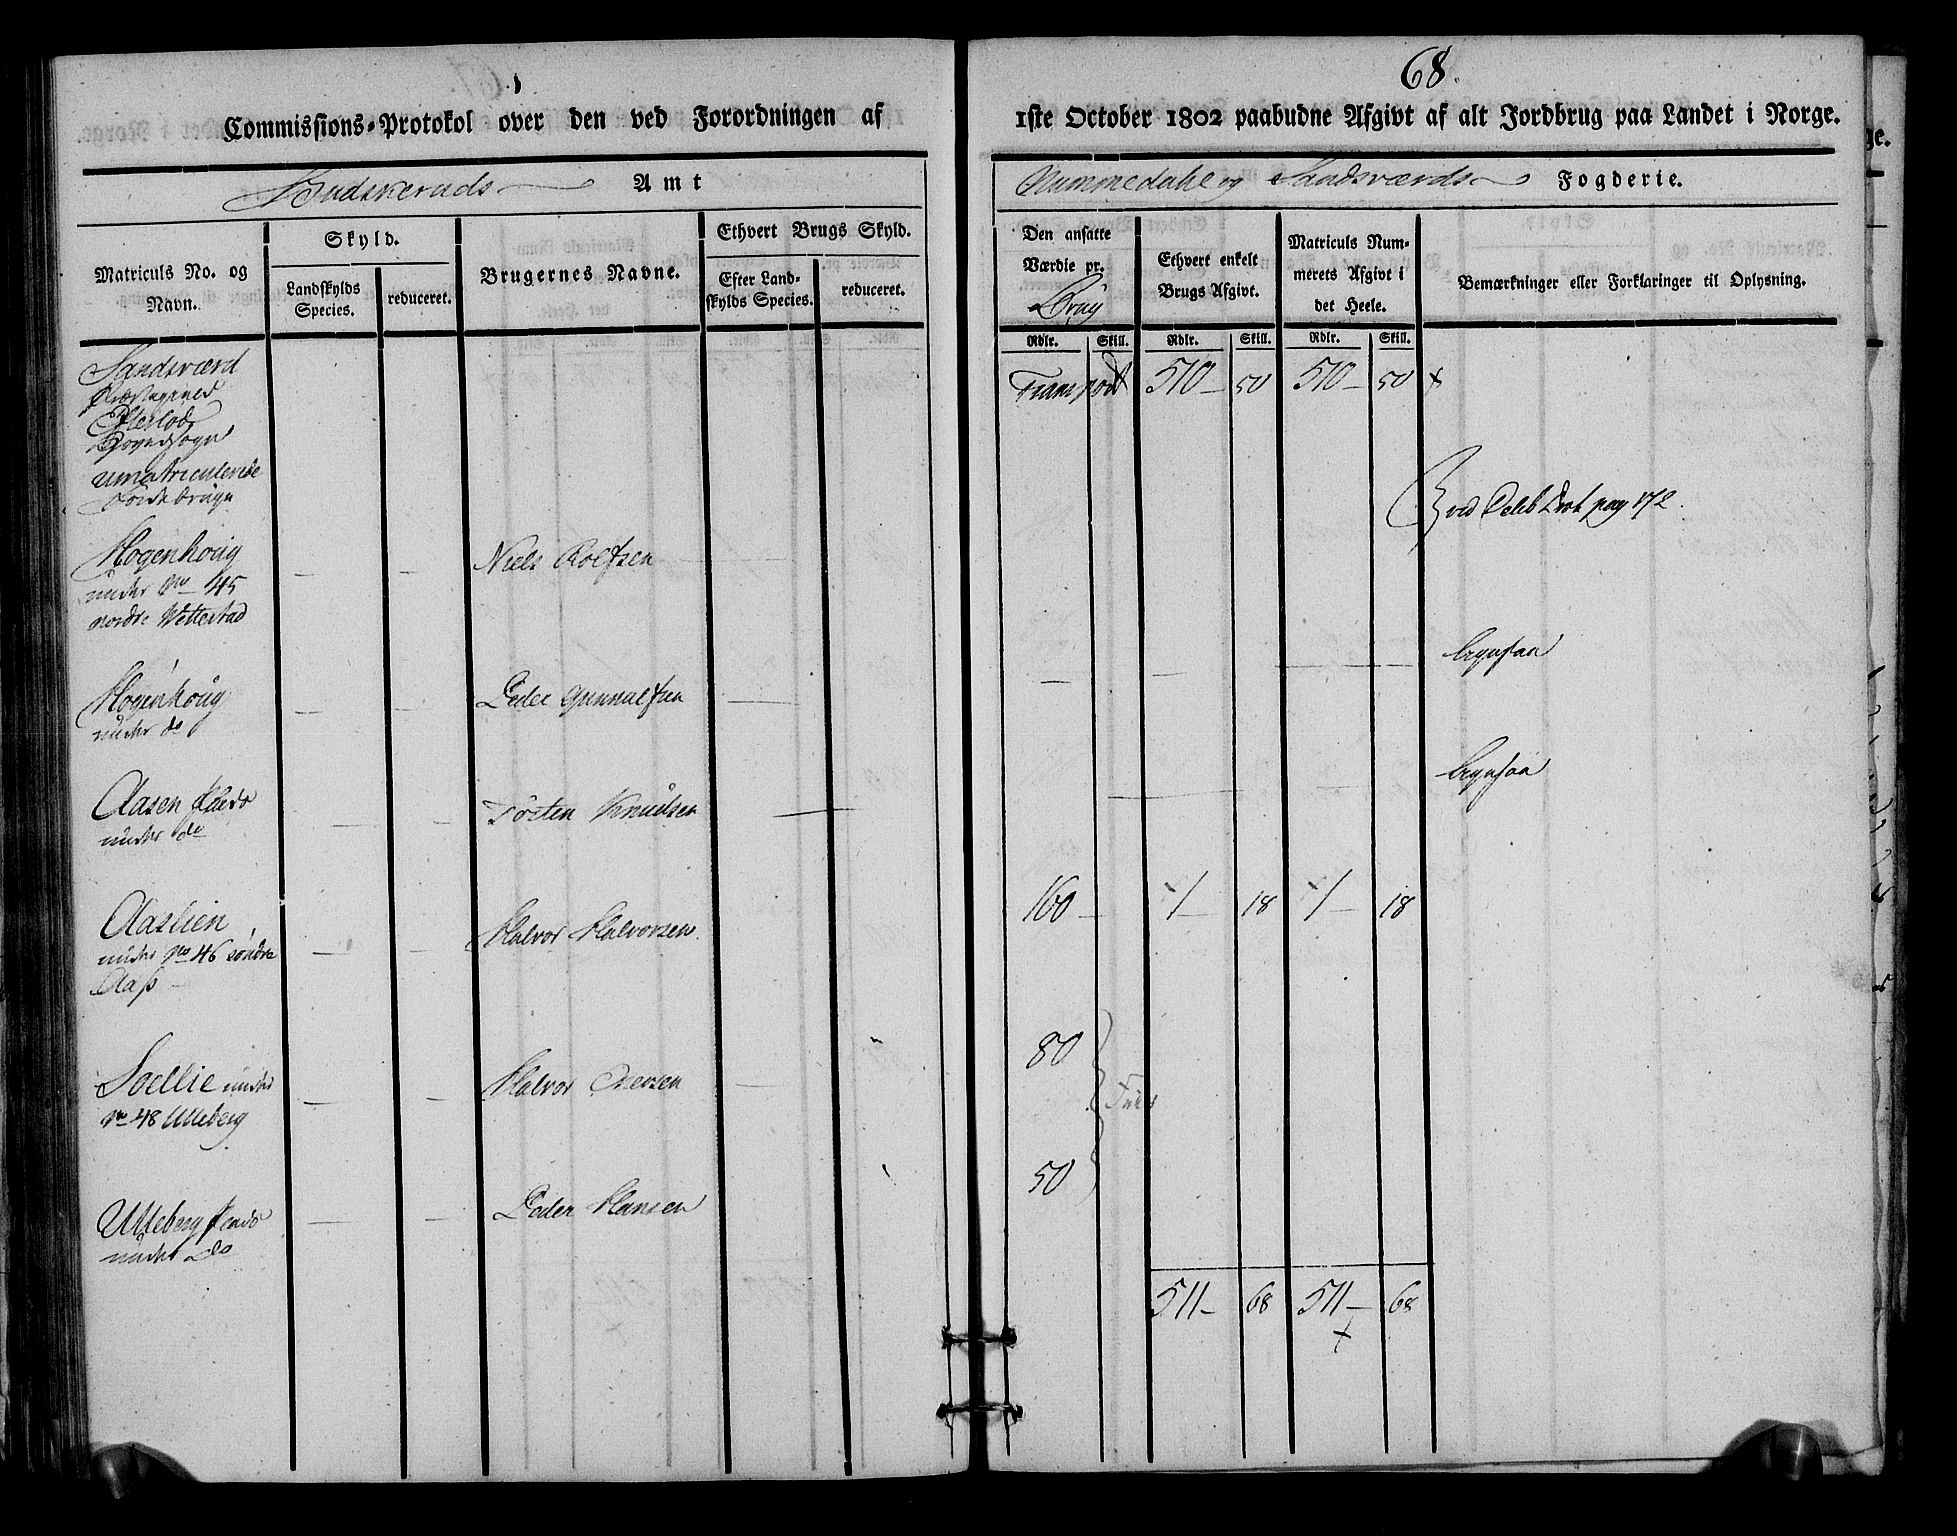 68.
Commissions-Protokol over den ved Forordningen af
1ste October 1802 paabudne Afgivt af alt Jordbrug paa Landet i Norge.
Budskeruds Amt
Nummedahl og Sandsværds Fogderie.
Matriculs No. og
Navn.
Skyld.
Landskylds
Species.
reduceret.
Brugernes Navne.
Ethvert Brugs Skyld.
Efter Land-
skylds Species.
reduceret.
Den ansatte
Værdie pr.
Brug
Rdlr. Skill.
Ethvert enkelt
Brugs Afgivt.
Rdlr. Skill.
Matriculs Num-
merets Afgivt i
det Heele.
Rdlr. Skill.
Bemærkninger eller Forklaringer til Oplysning.
Sandsværd
Præstegield
Hovedsogn
umatriculerede
Jordebruge
Transport 510 50 510 50
pag 172
Mogenhoug
under No 45
nordre Wettestad
Niels Rolfsen
Mogenhoug
under do
Peder Gunnulfsen
Aasen
under do
Torsten Knudsen
Aaslien
under No 46 søndre
Aaß
Halvor Halvorsen
160 1 18 1 18
Soellie under
No 48 Ulleberg
Halvor Iversen
80
Ulleberg
under do
Peder Hansen
50
511 68 511 68